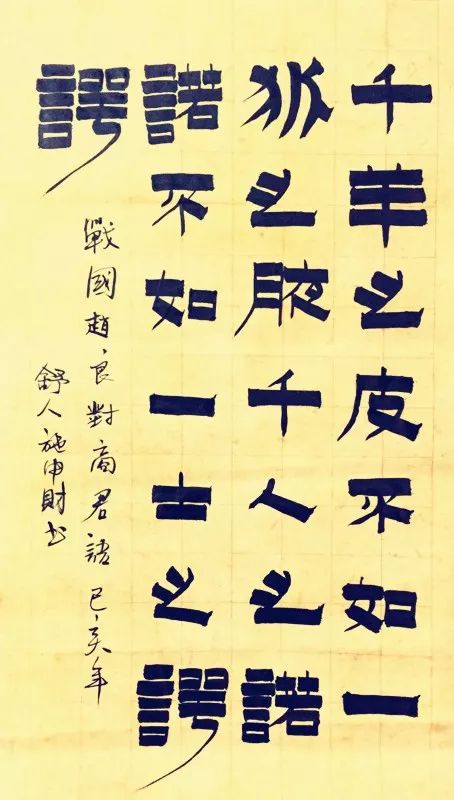 千羊之皮不如一
狐之腋千人之諾
諾不如一士之諤
諤
戰國趙良對商君語 己亥年
舒人施申財书